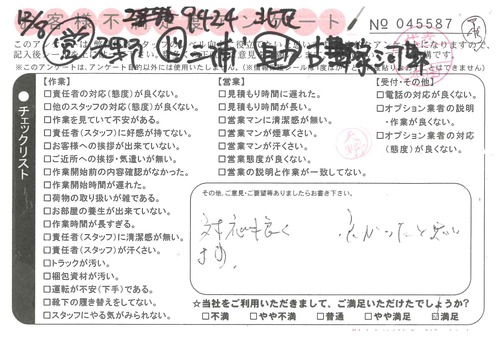 お客様不満足アンケート
9424
No 045587
三浦
※このアンケートは、アンケート目的以外には使用いたしません。
チェックリスト
【作業】
□責任者の対応(態度)が良くない。
□他のスタッフの対応(態度)が良くない。
□作業を見ていて不安がある。
□責任者(スタッフ)に好感が持てない。
□お客様への挨拶が出来ていない。
□ご近所への挨拶・気遣いが無い。
□作業開始前の内容確認がなかった。
□作業開始時間が遅れた。
□荷物の取り扱いが雑である。
□お部屋の養生が出来ていない。
□作業時間が長すぎる。
□責任者(スタッフ)に清潔感が無い。
□責任者(スタッフ)が汗くさい。
□トラックが汚い。
□梱包資材が汚い。
□運転が不安(下手)である。
□靴下の履き替えをしてない。
□スタッフにやる気がみられない。
【営業】
□見積もり時間に遅れた。
□見積もり時間が長い。
□営業マンに清潔感が無い。
□営業マンが煙草くさい。
□営業マンが汗くさい。
□営業態度が良くない。
□営業の説明と作業が一致してない。
【受付・その他】
□電話の対応が良くない。
□オプション業者の説明
・作業が良くない。
□オプション業者の対応
(態度)が良くない。
その他、ご意見・ご要望等ありましたらお書き下さい。
対応も良く 良かったと思い
ます。
☆当社をご利用いただきまして、ご満足いただけたでしょうか?
□不満 □やや不満 □普通 □やや満足 ☑満足